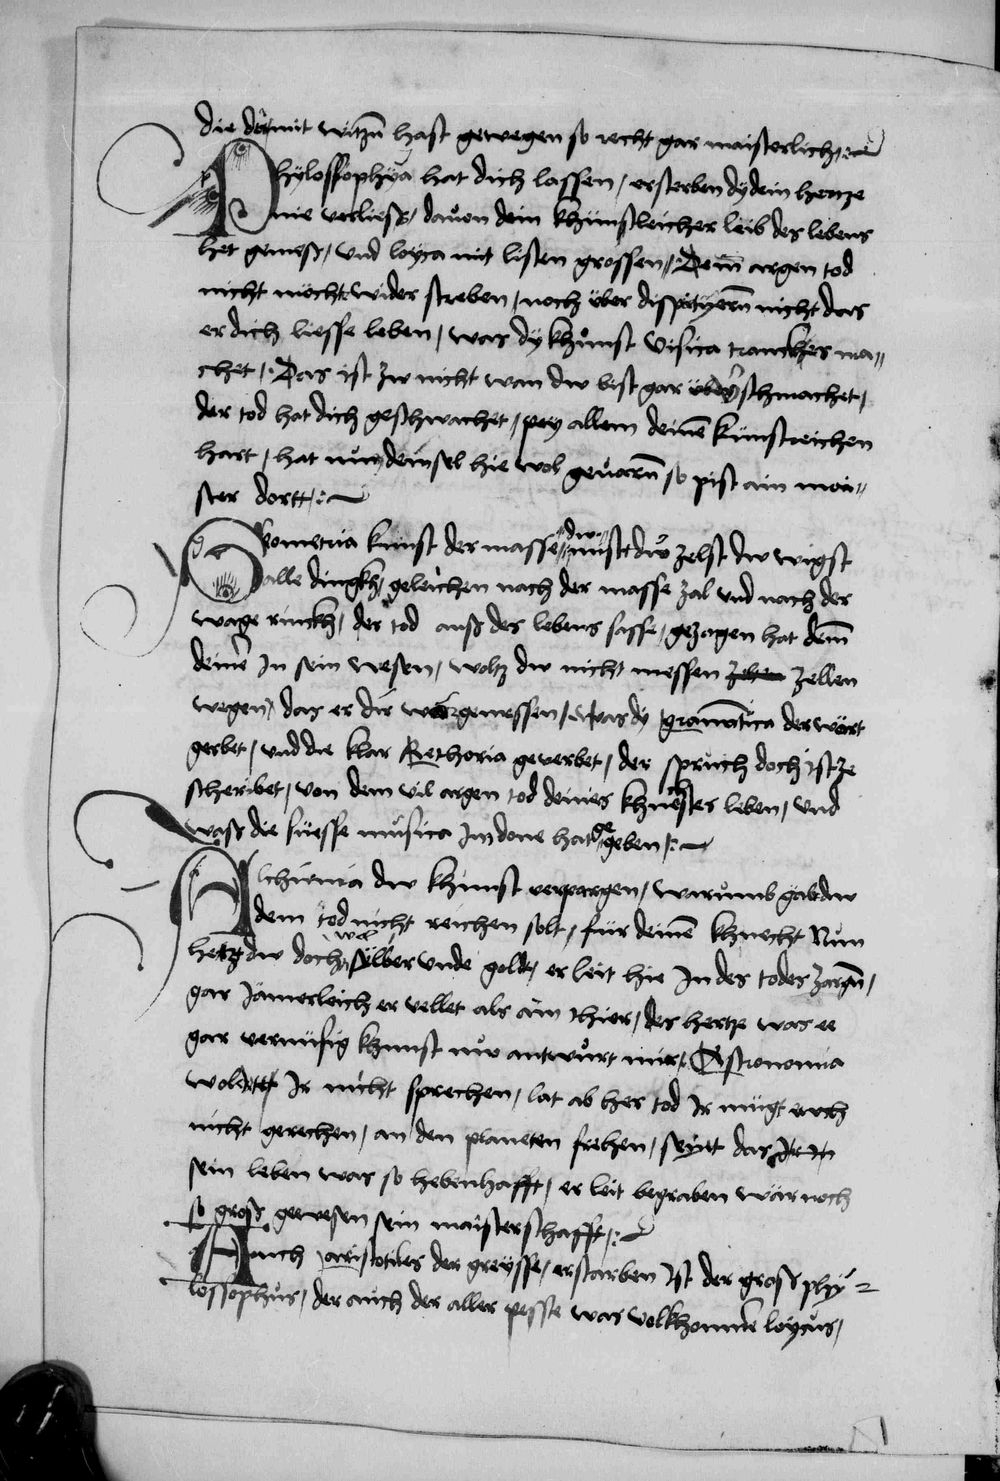 die du mit witzn̄ hast gewegen so recht gar maisterlich
Phylossophya hat dich lassen / ersterben dy dein hercze
nie verliess / dauon dein khünstleicher leib des lebens
het geniess / vnd loyca mit listen grossen / Dem̄ argen tod
nicht möcht wider streben / noch über disputyern̄ nicht das
er dich liesse leben / was dy khunst visica tranckhes ma„
chet / Das ist zw nicht wan dw best gar schmachet /
der tod hat dich geschwachet / pey allem deinē künstreichen
hart / hat nun dein sel hie wol geuarn̄ so pist ain mai„
ster dortt
Geometria kunst der masse dw zelst dw wigst
alle dingkh geleichen nach der masse zal vnd nach der
wage rinckh / der tod auss des lebens sasse / gezogen hat dem̄
deinē In sein wesen / woltz dw nicht messen zellen
wegen / das er dir wär genessen / Was dy gramatica der wart
gerbet / vnd die klar Rethoria geuerbet / der spruch doch ist ze
scherbet / von dem vil argen tod deines khnestes leben / vnd
wass die süesse musica Im done hat ge geben
Alchimia dw khunst verporgen / warumb gabdw
dem tod nicht reichen solt / für deinē khnecht Nun
hetz dw doch wol sylber vnde goldt / er leit hie In des todes zargn̄ /
gar Jämerleich er vellet als ain thier / des hertze was ee
gar vernüfig khunst nw antwurt mir / Astronomia
wolt Ir nicht sprechen / lat ab her tod Ir mügt euch
nicht gerechen / an den planeten frehen / seyt das
sein leben was so hebenhafft / er leit begraben wär noch
so gross gewesen sein maisterschafft
Auch aristotiles der greysse / erstarben Ist der gross phy
lossophus / der auch der aller peste was volkhomner loycus /